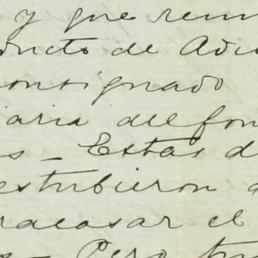 y que remi
ducto de Adu
consignado
iaria del fon
s - Estas d
estubieron a
racasar el
s - Pero tra